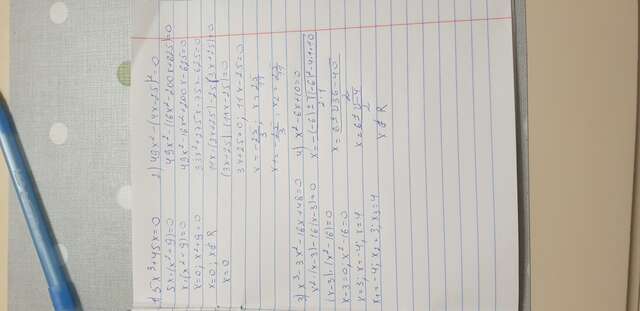 1) 5x³+45x=0
5x·(x²+9)=0
x·(x²+9)=0
x=0; x²+9=0
x=0; x∉R
x=0
2) 49x²-(4x-25)²=0
49x²-(16x²-200x+625)=0
49x²-16x²+200x-625=0
33x²+275x-75x-625=0
11x(3x+25)-25(3x+25)=0
(3x+25)·(11x-25)=0
3x+25=0; 11x-25=0
x=-25/3; x=25/11
x₁=-25/3; x₂=25/11
3) x³-3x²-16x+48=0
x²·(x-3)-16(x-3)=0
(x-3)·(x²-16)=0
x-3=0; x²-16=0
x=3; x=-4; x=4
x₁=-4; x₂=3; x₃=4
4) x²-6x+10=0
x=-(-6)±√(-6)²-4·1·10/2·1
x=6±√36-40/2
x=6±√-4/2
x∉R